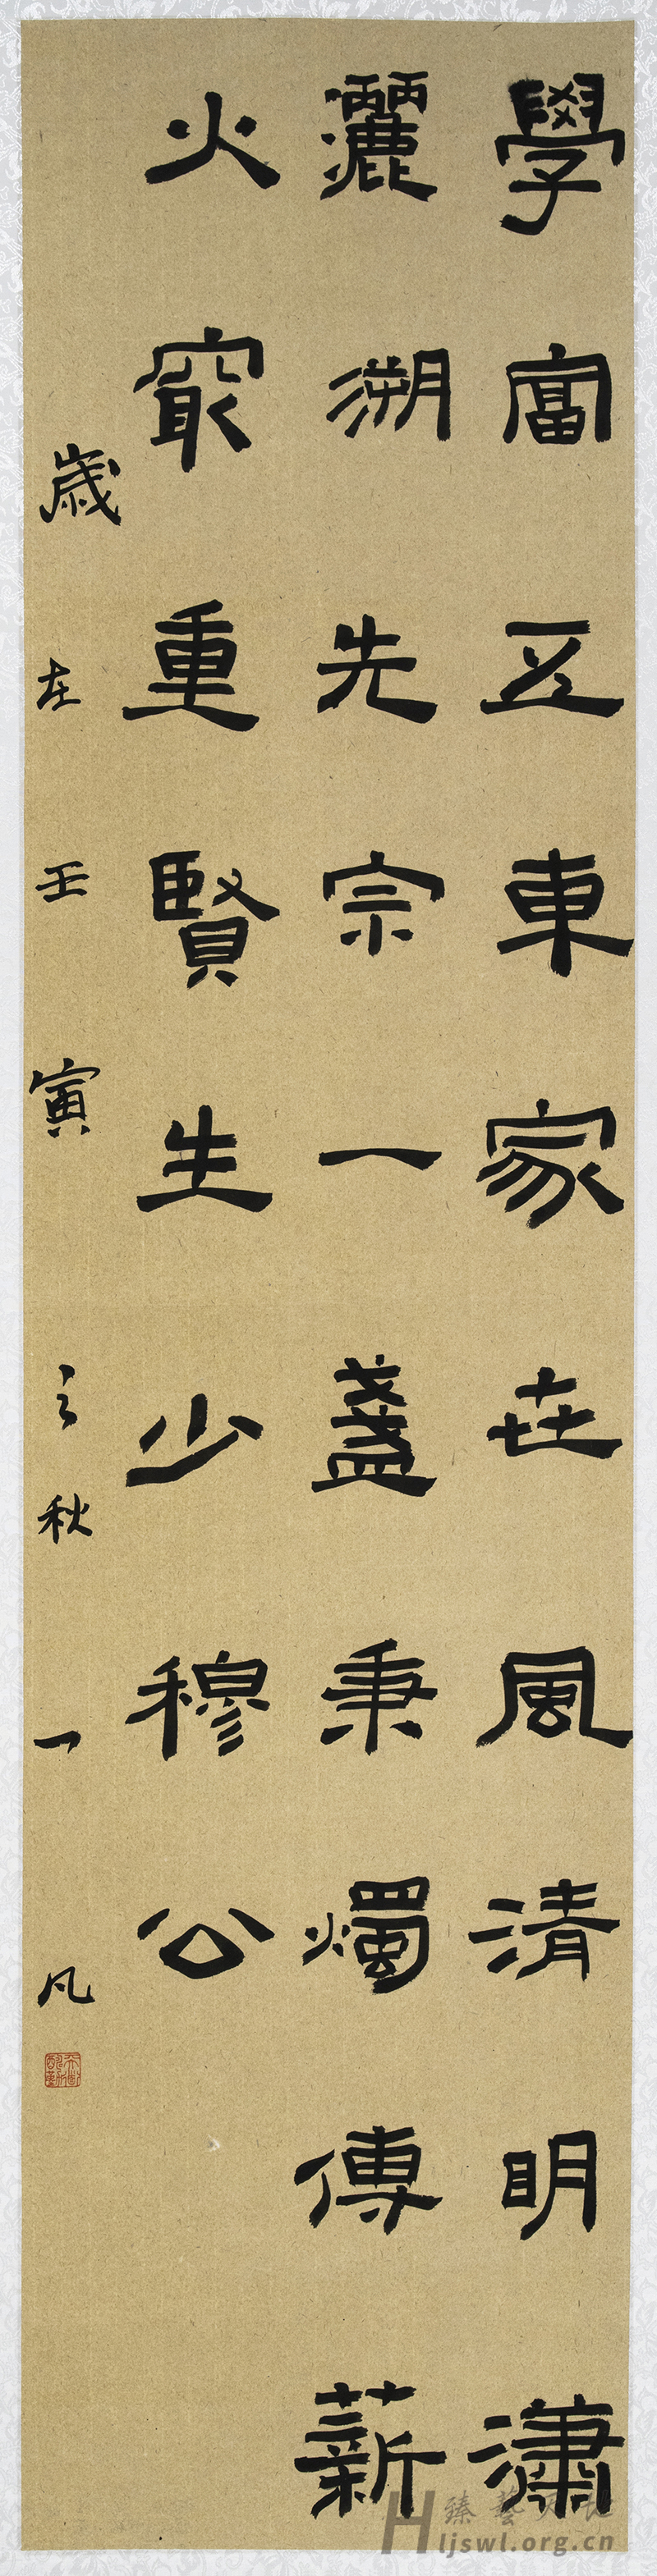 學富五車家世風清明瀟
灑溯先宗一盞秉燭傳薪
火最重賢生少穆公
歲在壬寅之秋一凡
臻藝天地
ljswl.org.cn